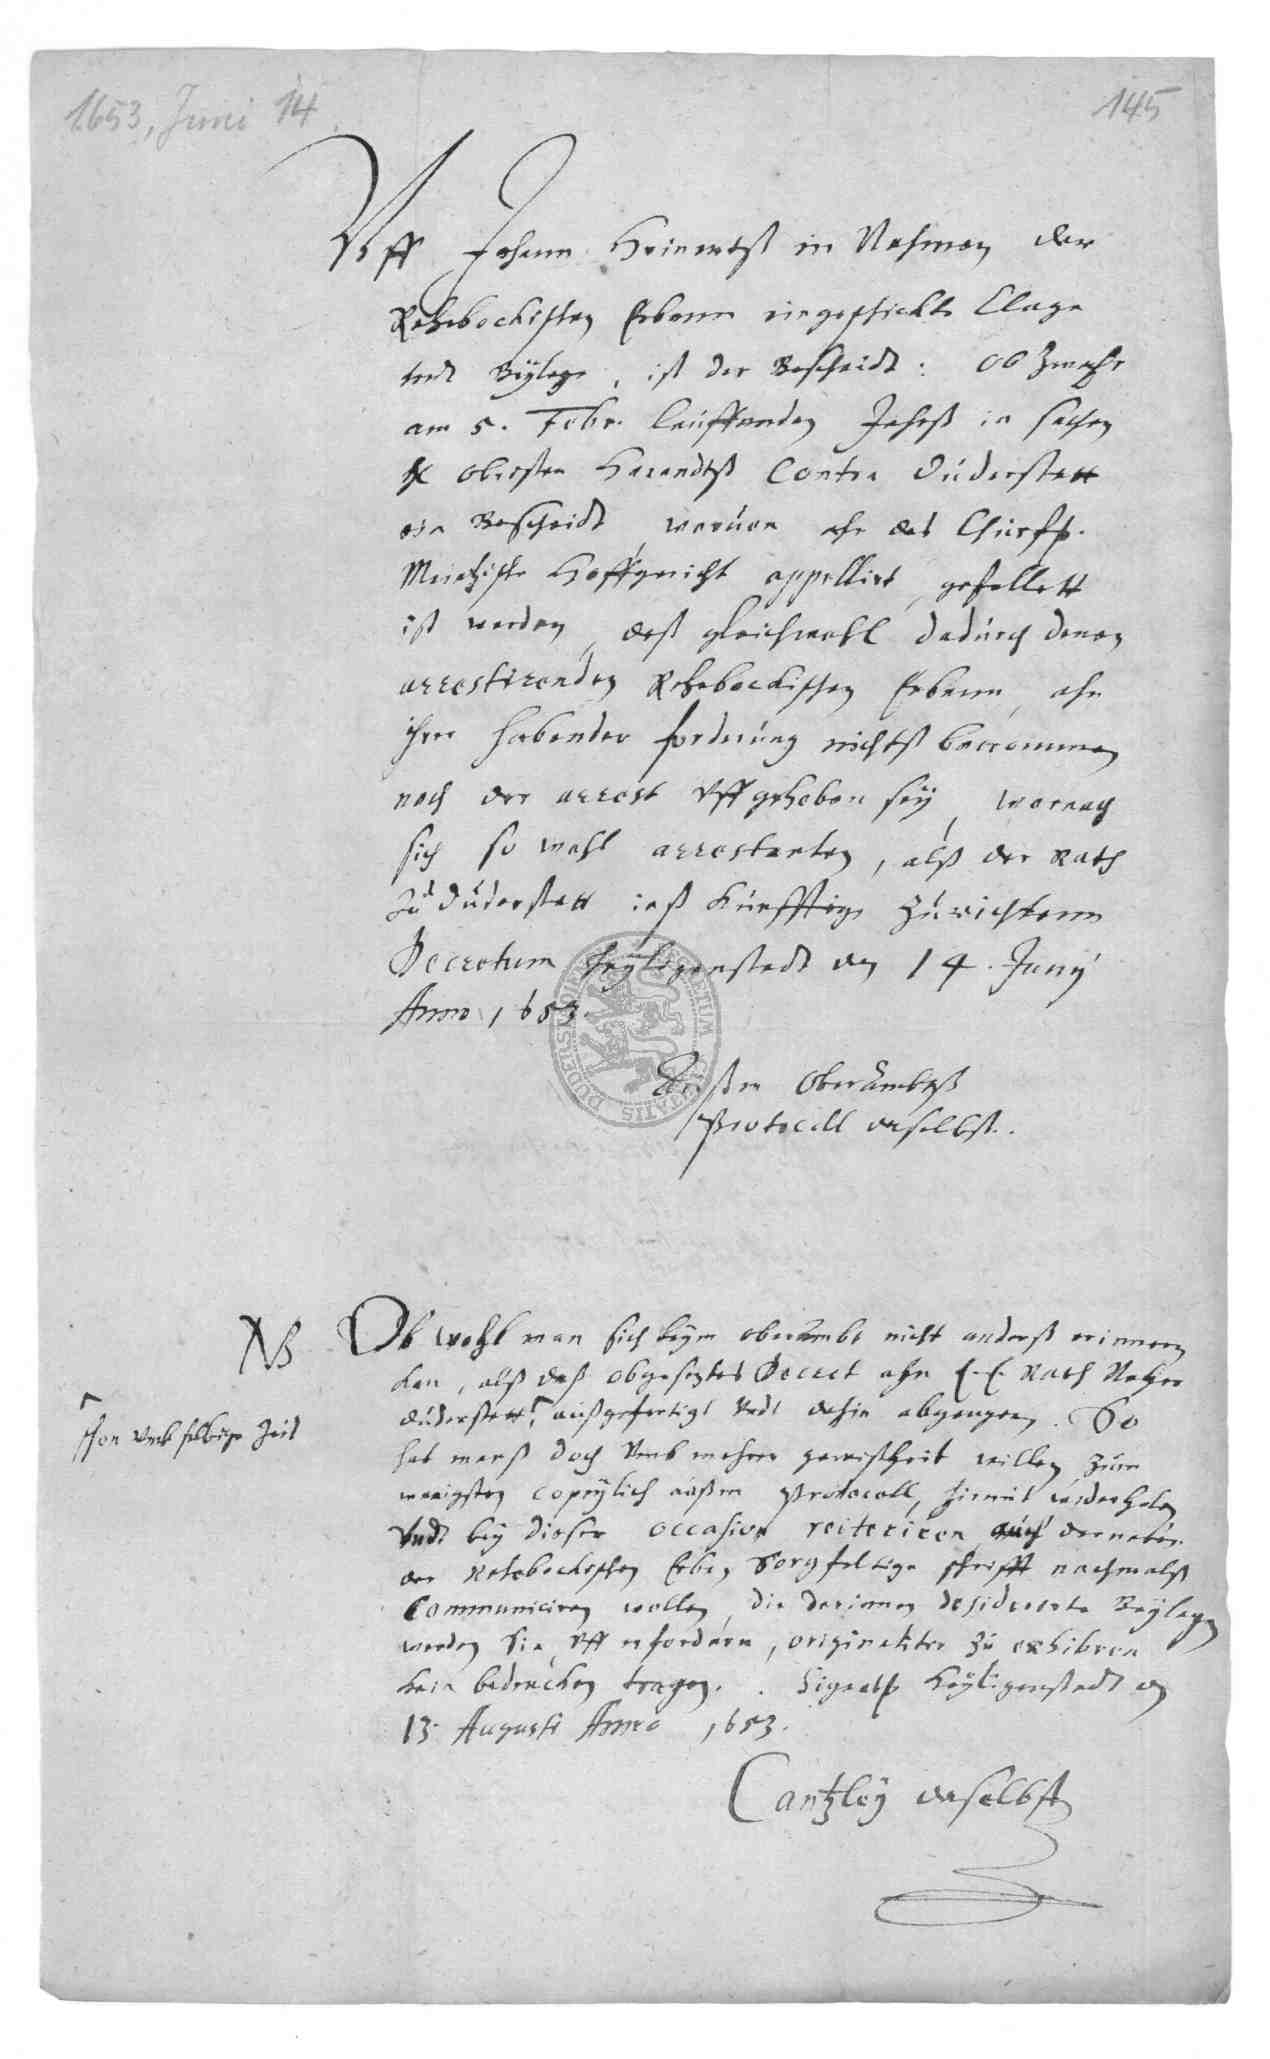 1653, Juni 14.
145
Vff Johann Heinemtß in Nahmen der
Rehebockischen Erbenn eingeschickte Clage
vndt Beylage, ist der Bescheidt: Ob Zwahr
am 5. Febr. lauffenden Jahrß in sachen
Obersten contra Duderstatt
ein Bescheidt, wovon ahn das Churfs.
Meintzische Hoffgericht appellirt, gefellett
ist worden, daß gleichwohl dadurch denen
arrestirenden Rehebockischen Erbenn, ahn
ihrer habender forderung nichtß benommen
noch der arrest Vffgehoben sey, wornach
sich so wohl arrestanten, alß der Rath
Zu Duderstatt inß Künfftige Zurichtenn
Decretum Heyligenstadt den 14. Juny
Anno 1653.
Außm Oberambtß
Protocoll daselbst.
NB Ob wohl man sich beym oberambt nicht anderß erinnern
kan, alß daß obgesetztes Decret ahn E. E. Rath Nacher
Duderstatt, außgefertigt Vndt dahin abgangen. So
schon Vmb selbige Zeit
hat manß doch Vmb mehrer gewißheit willen, zum
wenigsten copeylich außm Protocoll, hiemit wiederholen
Vndt bey dieser occasion reiteriren auch darneben
der Rehebockischen Erben Sorgfeltige schrifft nachmalß
Communiciren wollen, die darinnen desiderirte Beylagen
werden Sie, Vff erfordern, originaliter zu exhibiren
kein bedencken tragen. Signatum Heyligenstadt den
13. Augusti Anno 1653.
Cantzley daselbst
SECRETUM CIVITATIS DUDERSTADIENSIS